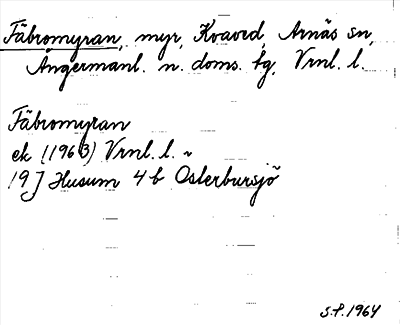 Fäbromyran, myr, Kvaved, Arnäs sn,
Ångermanl. n. doms. fg, Vrnl. l.
Fäbromyran
ek (1963) Vrnl. l.
19J Husum 4b Österbursjö
S.P. 1964